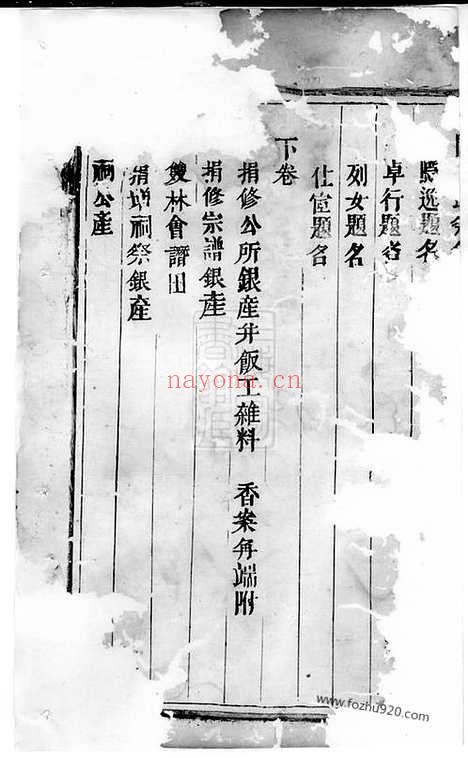 隱逸題名
卓行題名
列女題名
仕宦題名
下卷
捐修公所銀産并飯工雜料 香案每端附
捐修宗譜銀産
雙林會譜田
捐增祠祭銀産
祠公産
nayona.cn
www.fozhu920.com